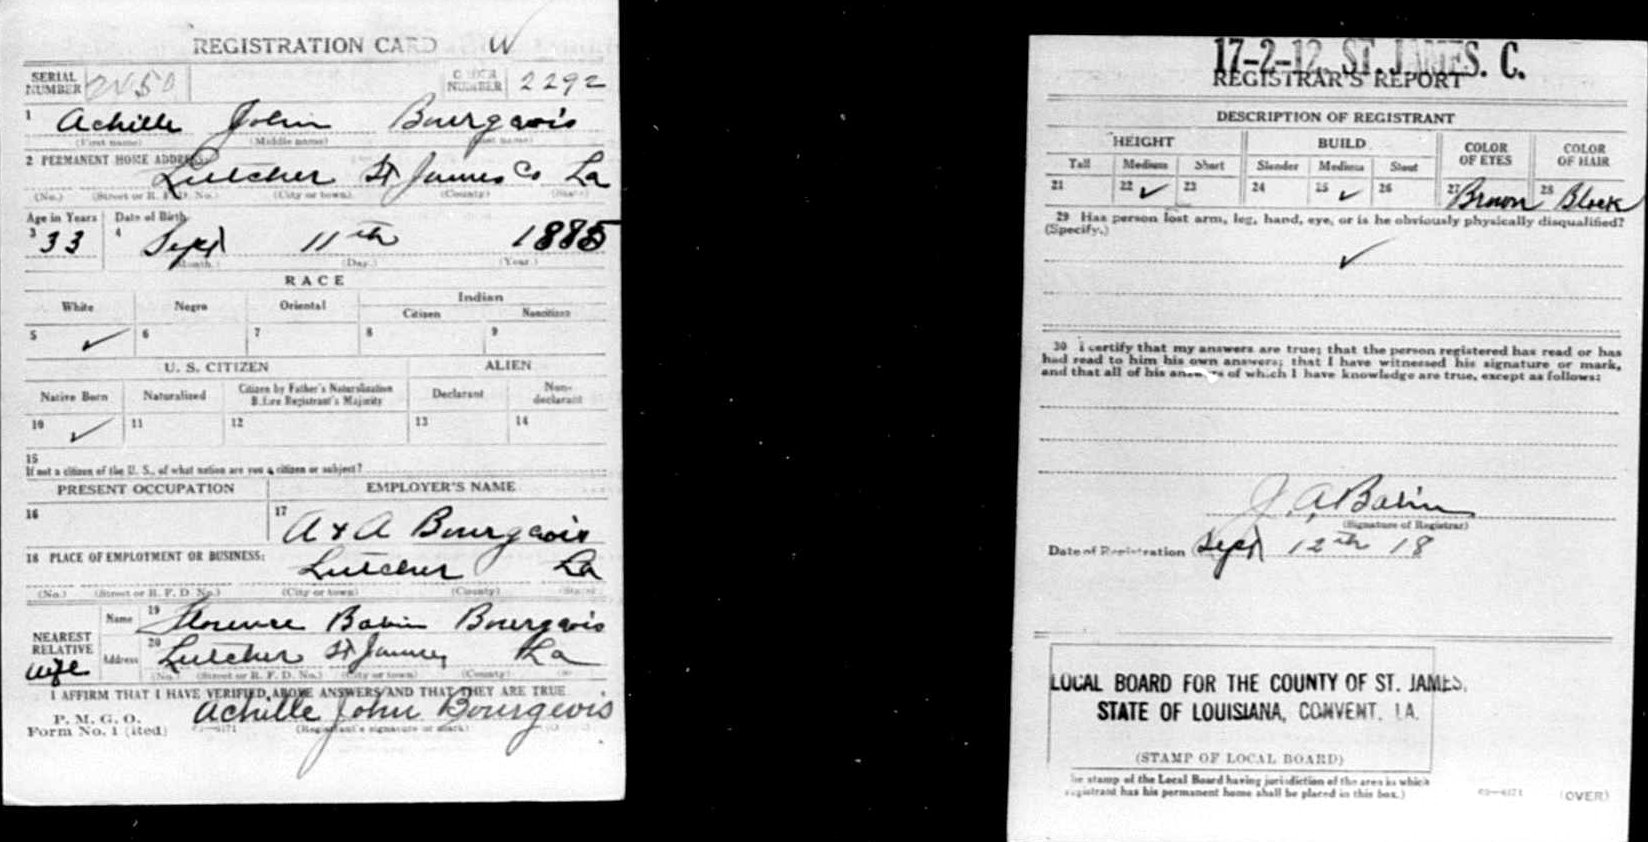 REGISTRATION CARD W
SERIAL NUMBER
ORDER NUMBER 2292
1 Achille John Bourgeois
(First name) (Middle name) (Last name)
2 PERMANENT HOME ADDRESS:
Lutcher St James Co La
(No.) (Street or R. F. D. No.) (City or town) (County) (State)
Age in Years Date of Birth
3 33 4 Sept 11th 1885
(Month.) (Day.) (Year.)
RACE
White Negro Oriental Indian
Citizen Noncitizen
5 ✓ 6 7 8 9
U. S. CITIZEN ALIEN
Native Born Naturalized Citizen by Father's Naturalization Before Registrant's Majority Declarant Non-declarant
10 ✓ 11 12 13 14
15
If not a citizen of the U. S., of what nation are you a citizen or subject?
PRESENT OCCUPATION EMPLOYER'S NAME
16 17 A & A Bourgeois
18 PLACE OF EMPLOYMENT OR BUSINESS:
Lutcher La
(No.) (Street or R. F. D. No.) (City or town) (County) (State)
NEAREST RELATIVE wife
Name 19 Florence Babin Bourgeois
Address 20 Lutcher St James, La
(No.) (Street or R. F. D. No.) (City or town) (County)
I AFFIRM THAT I HAVE VERIFIED ABOVE ANSWERS AND THAT THEY ARE TRUE
P. M. G. O.
Form No. 1 (ited) Achille John Bourgeois
(Registrant's signature or mark)
17-2-12. ST. JAMES. C.
REGISTRAR'S REPORT
DESCRIPTION OF REGISTRANT
HEIGHT BUILD COLOR OF EYES COLOR OF HAIR
Tall Medium Short Slender Medium Stout
21 22 ✓ 23 24 25 ✓ 26 27 Brown 28 Black
29 Has person lost arm, leg, hand, eye, or is he obviously physically disqualified?
(Specify.)
✓
30 I certify that my answers are true; that the person registered has read or has
had read to him his own answers; that I have witnessed his signature or mark,
and that all of his answers of which I have knowledge are true, except as follows:
J. A. Babin
(Signature of Registrar)
Date of Registration Sept 12th 18
LOCAL BOARD FOR THE COUNTY OF ST. JAMES,
STATE OF LOUISIANA, CONVENT, LA.
(STAMP OF LOCAL BOARD)
he stamp of the Local Board having jurisdiction of the area in which
registrant has his permanent home shall be placed in this box.)
03—6171 (OVER)